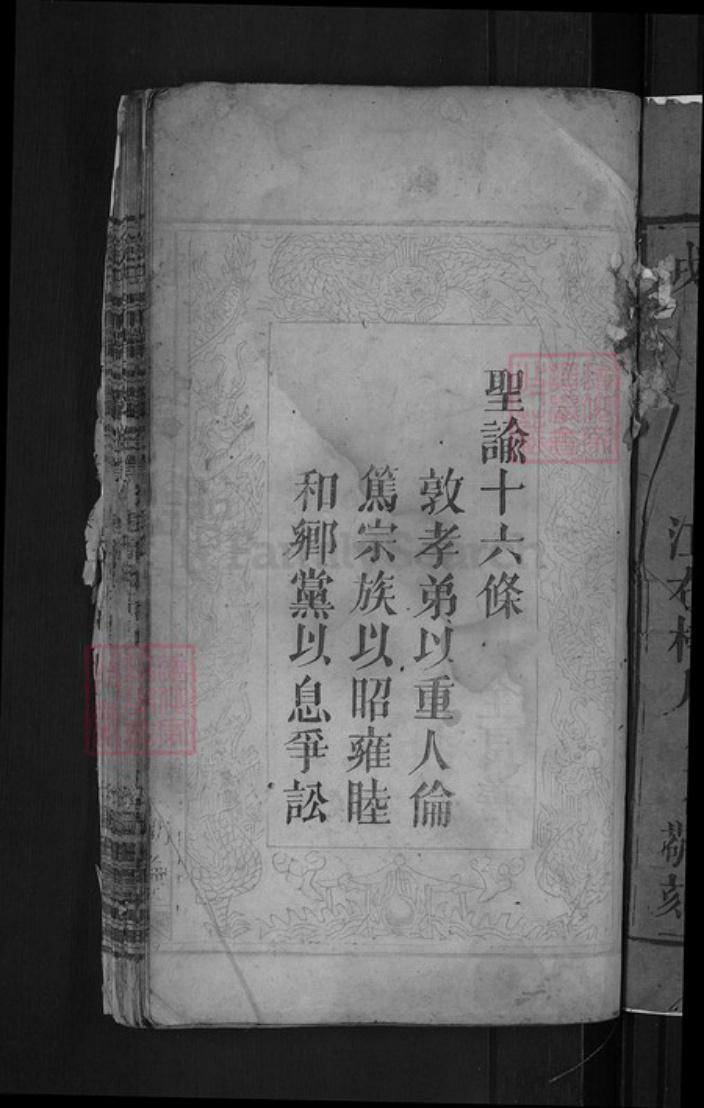 聖諭十六條
敦孝弟以重人倫
篤宗族以昭雍睦
和鄉黨以息爭訟
江右
勒刻
FamilySearch